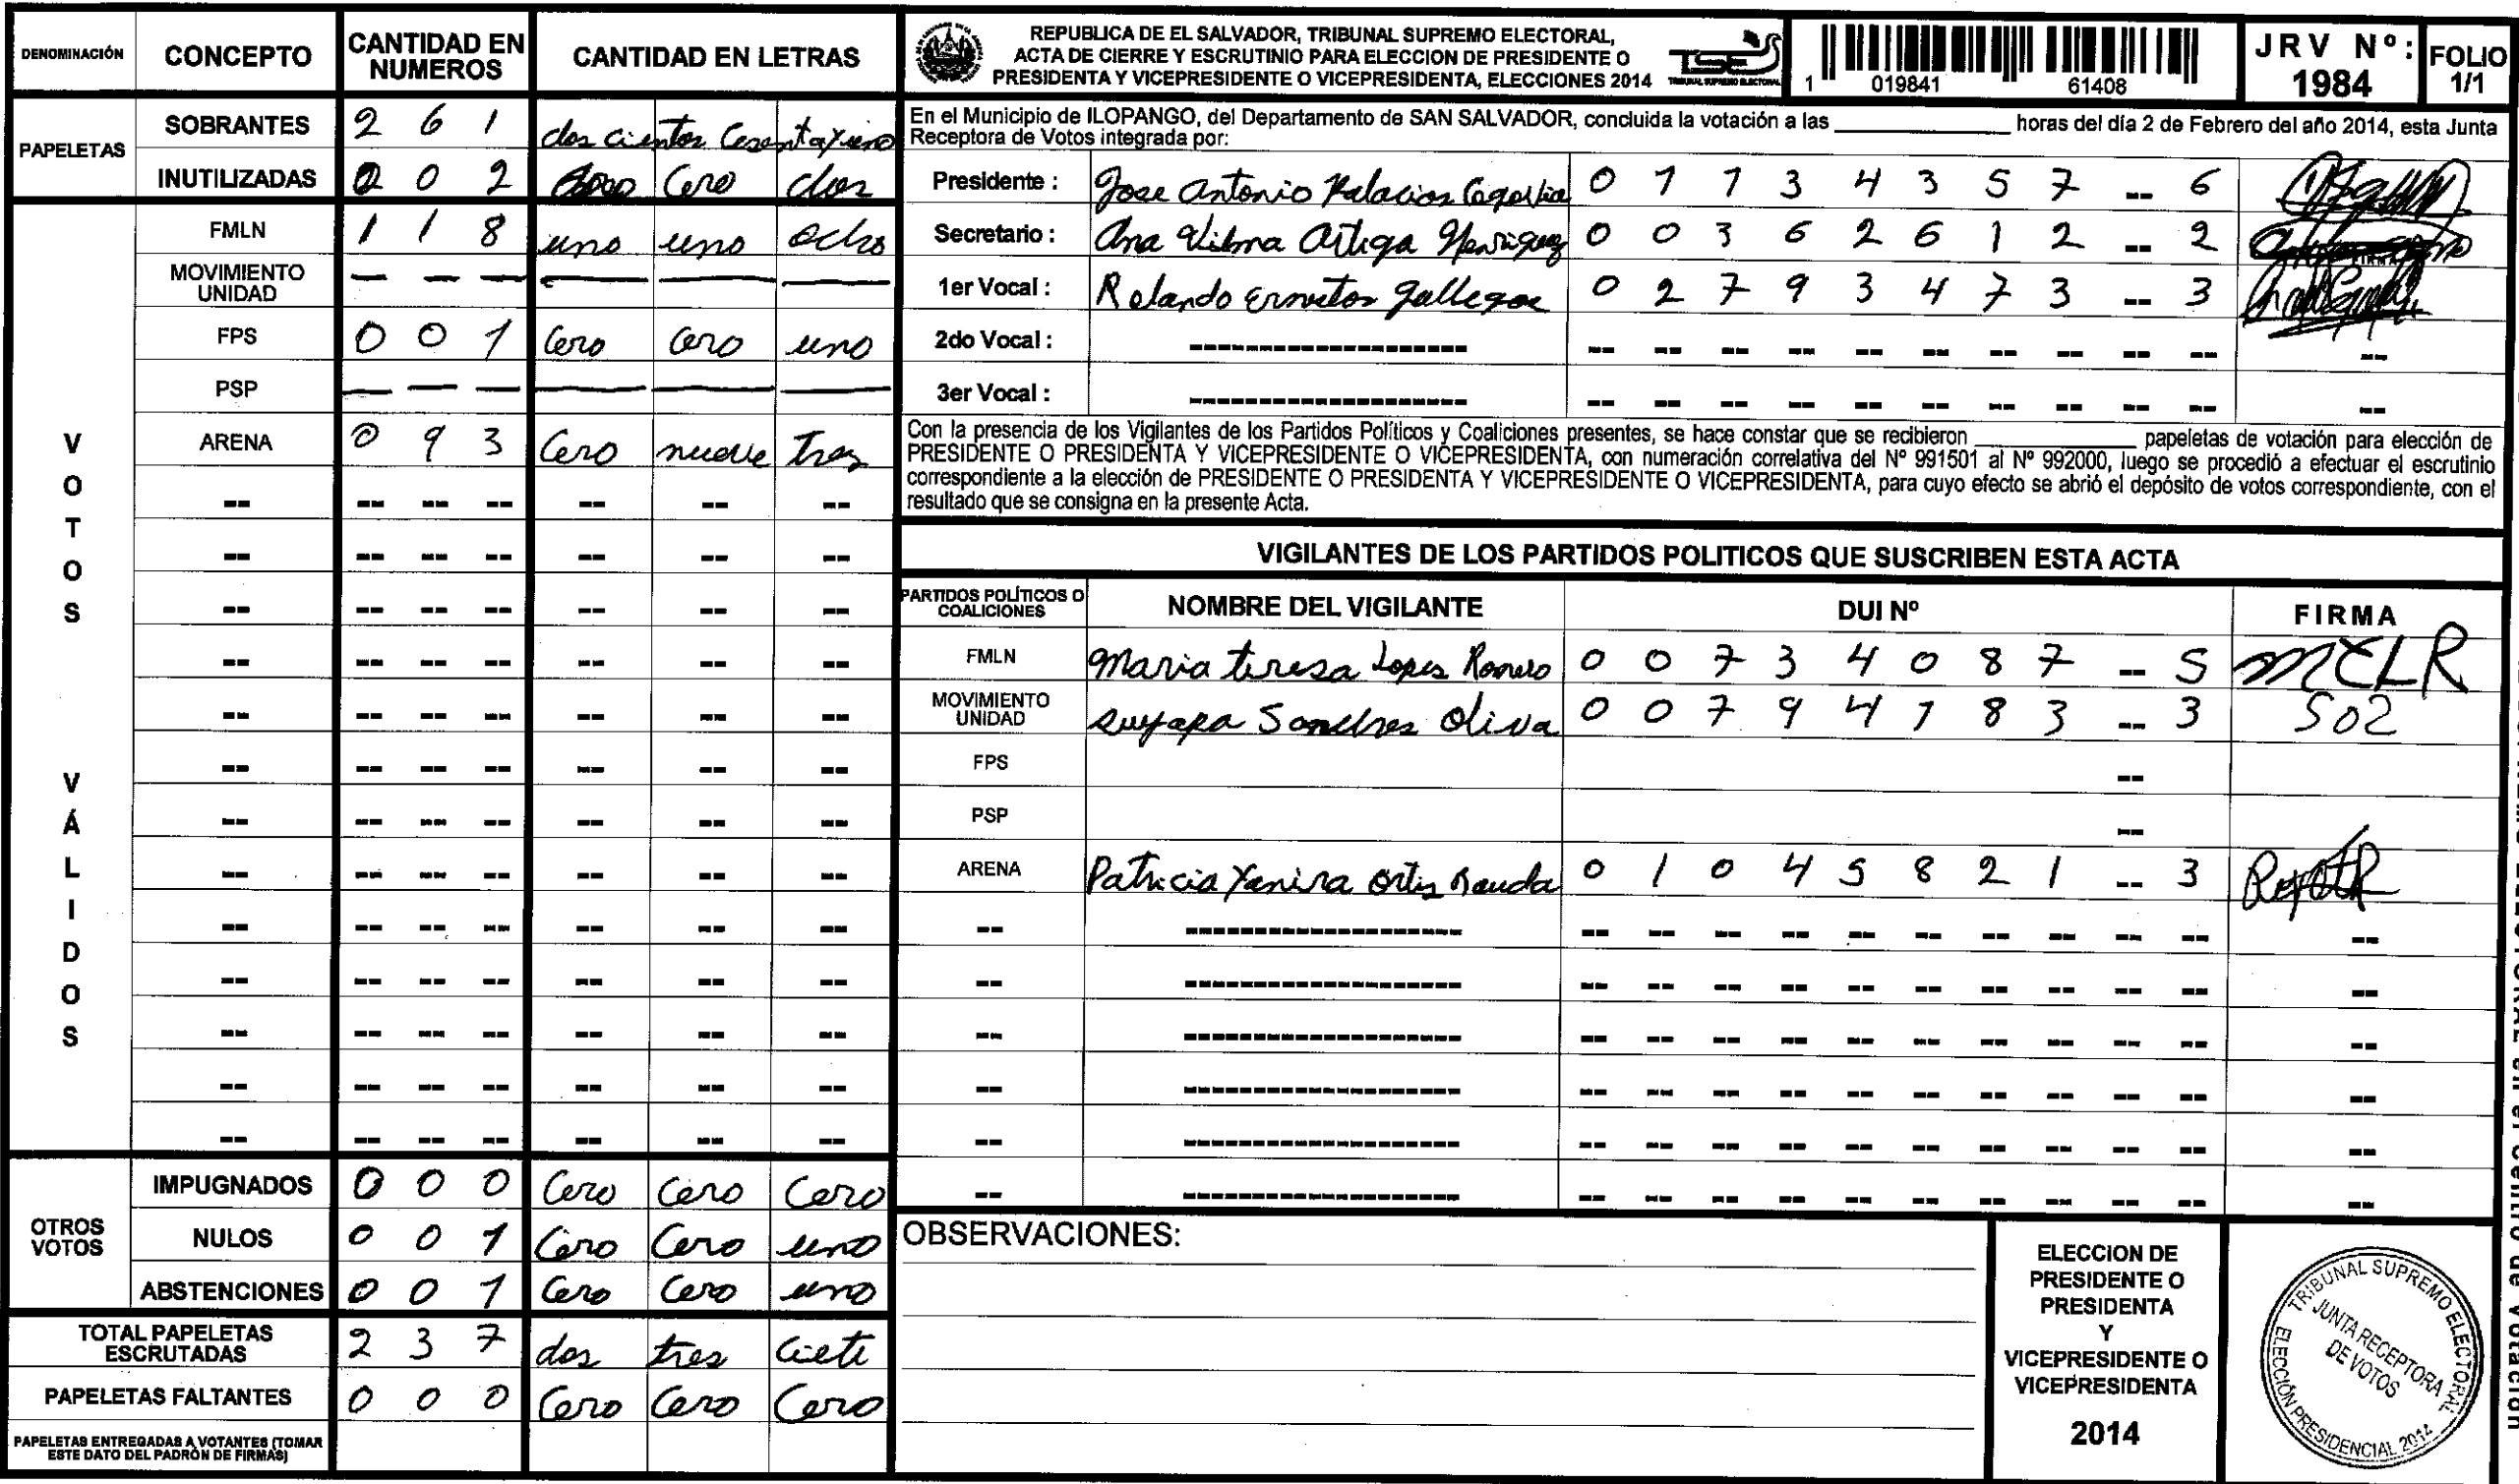 DENOMINACIÓN CONCEPTO CANTIDAD EN NUMEROS CANTIDAD EN LETRAS
PAPELETAS
SOBRANTES 2 6 1 dos cientos Cesenta y uno
INUTILIZADAS 0 0 2 Cero dos
VOTOS VÁLIDOS
FMLN 1 1 8 uno uno ocho
MOVIMIENTO UNIDAD — — — — — —
FPS 0 0 1 Cero Cero uno
PSP — — — — — —
ARENA 0 9 3 Cero nueve Tres
OTROS VOTOS
IMPUGNADOS 0 0 0 Cero Cero Cero
NULOS 0 0 1 Cero Cero uno
ABSTENCIONES 0 0 1 Cero Cero uno
TOTAL PAPELETAS ESCRUTADAS 2 3 7 dos tres Ciete
PAPELETAS FALTANTES 0 0 0 Cero Cero Cero
PAPELETAS ENTREGADAS A VOTANTES (TOMAR
ESTE DATO DEL PADRÓN DE FIRMAS)
REPUBLICA DE EL SALVADOR, TRIBUNAL SUPREMO ELECTORAL,
ACTA DE CIERRE Y ESCRUTINIO PARA ELECCION DE PRESIDENTE O
PRESIDENTA Y VICEPRESIDENTE O VICEPRESIDENTA, ELECCIONES 2014
TSE
TRIBUNAL SUPREMO ELECTORAL
1 019841 61408
JRV Nº: 1984
FOLIO 1/1
En el Municipio de ILOPANGO, del Departamento de SAN SALVADOR, concluida la votación a las ____ horas del día 2 de Febrero del año 2014, esta Junta
Receptora de Votos integrada por:
Presidente : Jose Antonio Palacios 0 1 1 3 4 3 5 7 -- 6
Secretario : Ana Vilma Artiga Henriquez 0 0 3 6 2 6 1 2 -- 2
1er Vocal : Rolando Ernesto Gallegos 0 2 7 9 3 4 7 3 -- 3
2do Vocal :
3er Vocal :
Con la presencia de los Vigilantes de los Partidos Políticos y Coaliciones presentes, se hace constar que se recibieron ____ papeletas de votación para elección de
PRESIDENTE O PRESIDENTA Y VICEPRESIDENTE O VICEPRESIDENTA, con numeración correlativa del Nº 991501 al Nº 992000, luego se procedió a efectuar el escrutinio
correspondiente a la elección de PRESIDENTE O PRESIDENTA Y VICEPRESIDENTE O VICEPRESIDENTA, para cuyo efecto se abrió el depósito de votos correspondiente, con el
resultado que se consigna en la presente Acta.
VIGILANTES DE LOS PARTIDOS POLITICOS QUE SUSCRIBEN ESTA ACTA
PARTIDOS POLÍTICOS O COALICIONES NOMBRE DEL VIGILANTE DUI Nº FIRMA
FMLN Maria teresa Lopes Romero 0 0 7 3 4 0 8 7 -- 5 MTLR
MOVIMIENTO UNIDAD Suyapa Sanches Oliva 0 0 7 9 4 1 8 3 -- 3 SO2
FPS --
PSP --
ARENA Patricia Yanira Ortiz Rauda 0 1 0 4 5 8 2 1 -- 3
OBSERVACIONES:
ELECCION DE
PRESIDENTE O
PRESIDENTA
Y
VICEPRESIDENTE O
VICEPRESIDENTA
2014
TRIBUNAL SUPREMO ELECTORAL
JUNTA RECEPTORA
DE VOTOS
ELECCIÓN PRESIDENCIAL 2014